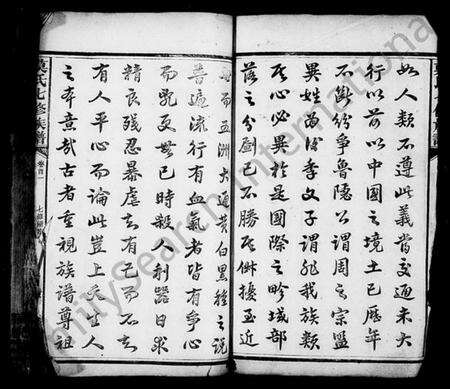 如人類不遵此義當交通未大
行以前以中國之境土已歷年
不斷紛爭魯隱公謂周之宗盟
異姓為後季文子謂非我族類
其心必異於是國際之畛域部
落之分劃已不勝其俶擾至近
而五洲大通黃白黑種之說
普遍流行有血氣者皆有爭心
而亂更無已時殺人利器日求
精良殘忍暴虐有己而不
有人平心而論此豈上天生人
之本意哉古者重視族譜尊祖
莫氏七修族譜
卷首